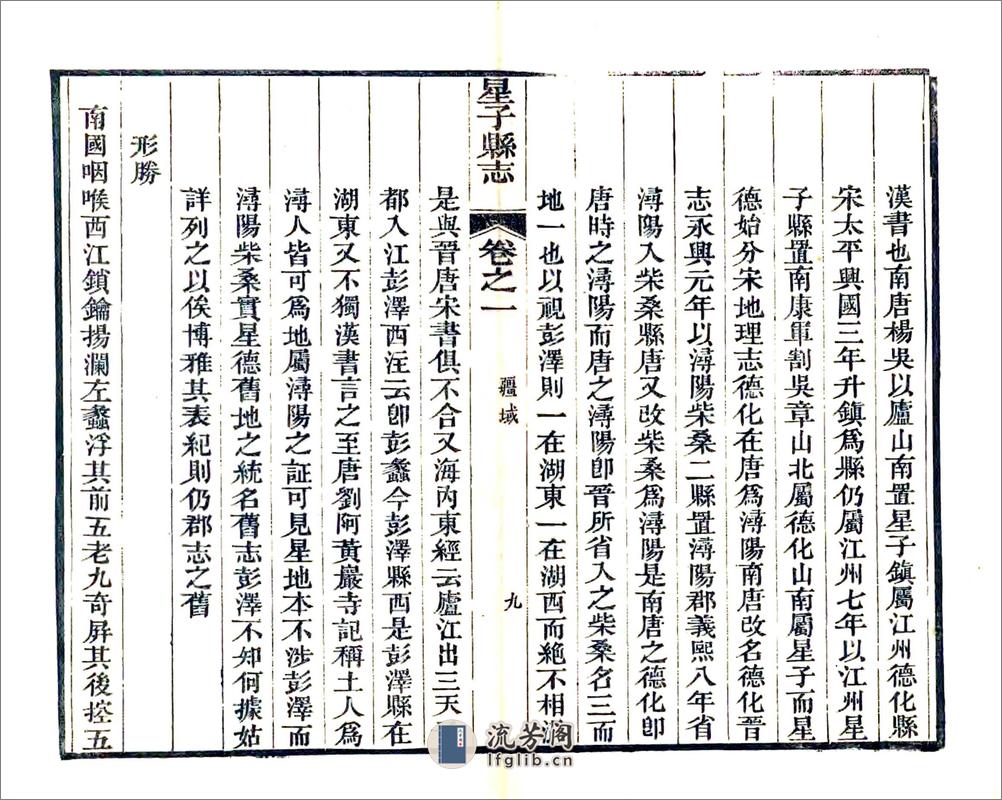 漢書也南唐楊吳以廬山南置星子鎮屬江州德化縣
宋太平興國三年升鎮爲縣仍屬江州七年以江州星
子縣置南康軍割吳章山北屬德化山南屬星子而星
德始分宋地理志德化在唐爲潯陽南唐改名德化晉
志永興元年以潯陽柴桑二縣置潯陽郡義熙八年省
潯陽入柴桑縣唐又改柴桑爲潯陽是南唐之德化卽
唐時之潯陽而唐之潯陽卽晉所省入之柴桑名三而
地一也以視彭澤則一在湖東一在湖西而絶不相
星子縣志
卷之一
疆域
九
是與晉唐宋書俱不合又海內東經云廬江出三天
都入江彭澤西注云卽彭蠡今彭澤縣西是彭澤縣在
湖東又不獨漢書言之至唐劉阿黃巖寺記稱土人爲
潯人皆可爲地屬潯陽之証可見星地本不涉彭澤而
潯陽柴桑實星德舊地之統名舊志彭澤不知何據姑
詳列之以俟博雅其表紀則仍郡志之舊
形勝
南國咽喉西江鎖鑰揚瀾左蠡浮其前五老九奇屏其後控五
流芳阁
lfglib.cn